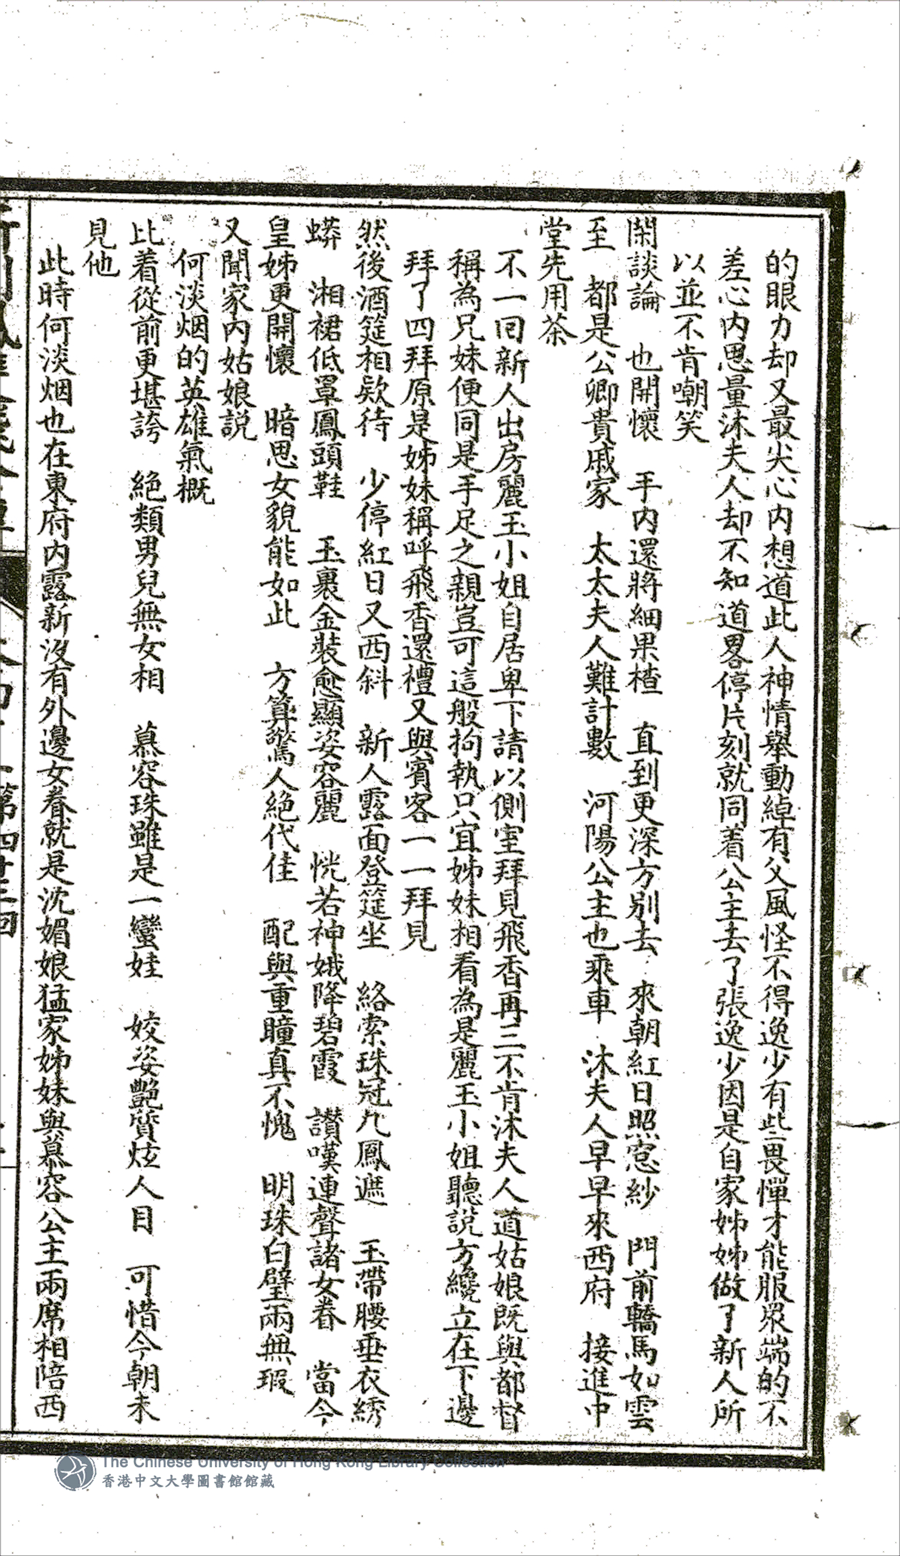 的眼力却又最尖心内想道此人神情舉動綽有父風怪不得逸少有些畏憚才能服眾端的不
差心内思量沐夫人却不知道畧停片刻就同着公主去了張逸少因是自家姊姊做了新人所
以並不肯嘲笑
閑談論　也開懷　平内還將細果楂　直到更深方別去　來朝紅日照窓紗　門前轎馬如雲
至　都是公卿貴戚家　太太夫人難計數　河陽公主也乘車　沐夫人早早來西府　接進中
堂先用茶
不一囘新人出房麗玉小姐自居卑下請以側室拜見飛香再三不肯沐夫人道姑娘既與都督
稱為兄妹便同是手足之親豈可這般拘執只宜姊妹相看為是麗玉小姐聽説方纔立在下邊
拜了四拜原是姊妹稱呼飛香還禮又與賓客一一拜見
然後酒筵相欵待　少停紅日又西斜　新人露面登筵坐　絡索珠冠九鳳遮　玉帶腰垂衣綉
蟒　湘裙低罩鳳頭鞋　玉裹金裝愈顯姿容麗　恍若神娥降碧霞　讃嘆連聲諸女眷　當今
皇姊更開懷　暗思女貌能如此　方算驚人絕代佳　配與重瞳真不愧　明珠白璧兩無瑕
又聞家内姑娘説
何淡烟的英雄氣概
比着從前更堪誇　絕類男兒無女相　慕容珠雖是一蠻娃　姣姿艷質炫人目　可惜今朝未
見他
此時何淡烟也在東府内露新沒有外邊女眷就是沈媚娘猛家姊妹與慕容公主兩席相陪西
第四十三囘
The Chinese University of Hong Kong Library Collection
香港中文大學圖書館館藏